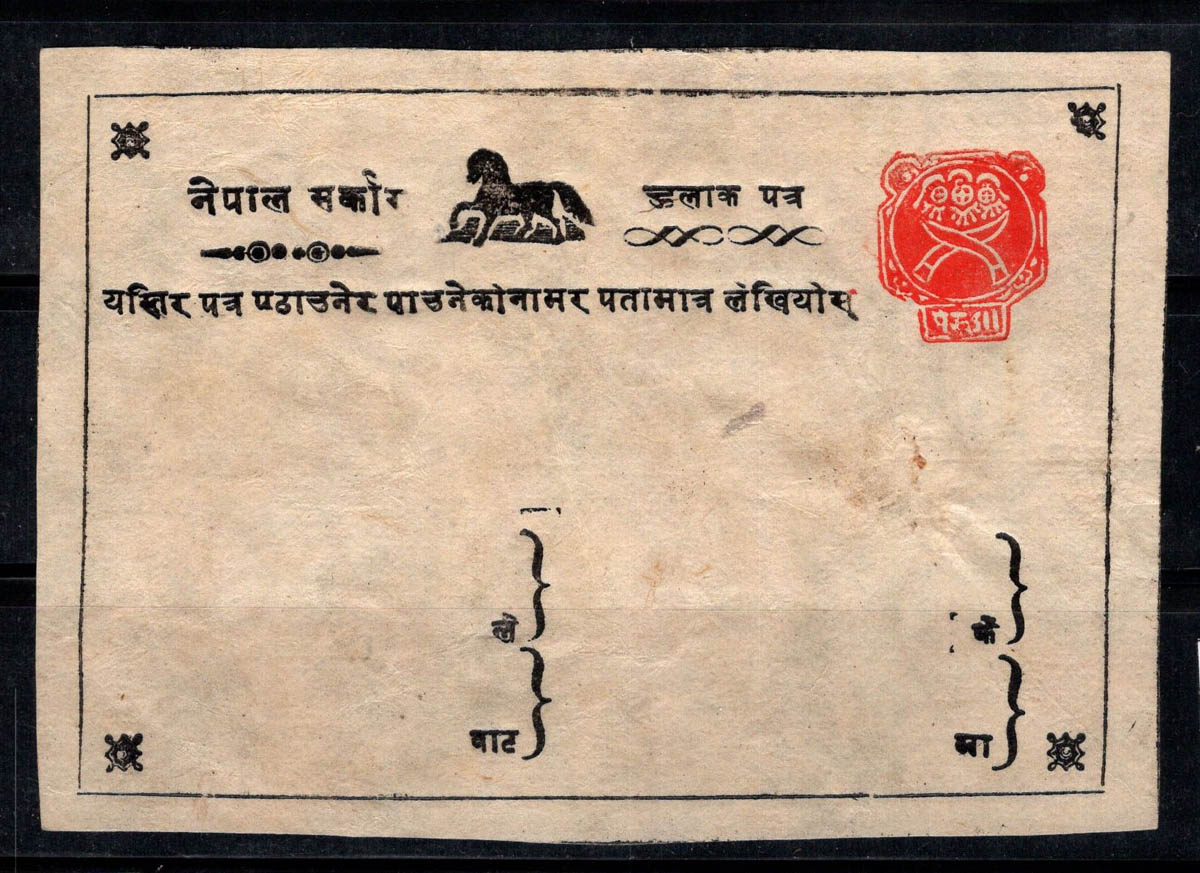 नेपाल सर्कार
हुलाक पत्र
यस्तिर पत्र पठाउनेर पाउनेकोनामर पतामात्र लेखियोस्
ले
के
बाट
मा